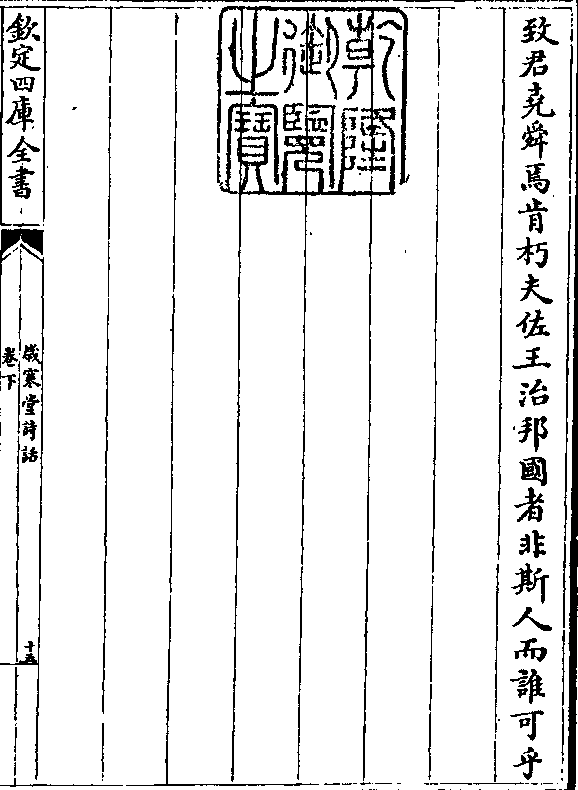 致君堯舜焉肯朽夫佐王治邦國者非斯人而誰可乎
乾隆御覽之寶
欽定四庫全書
歲寒堂詩話
卷下
十五